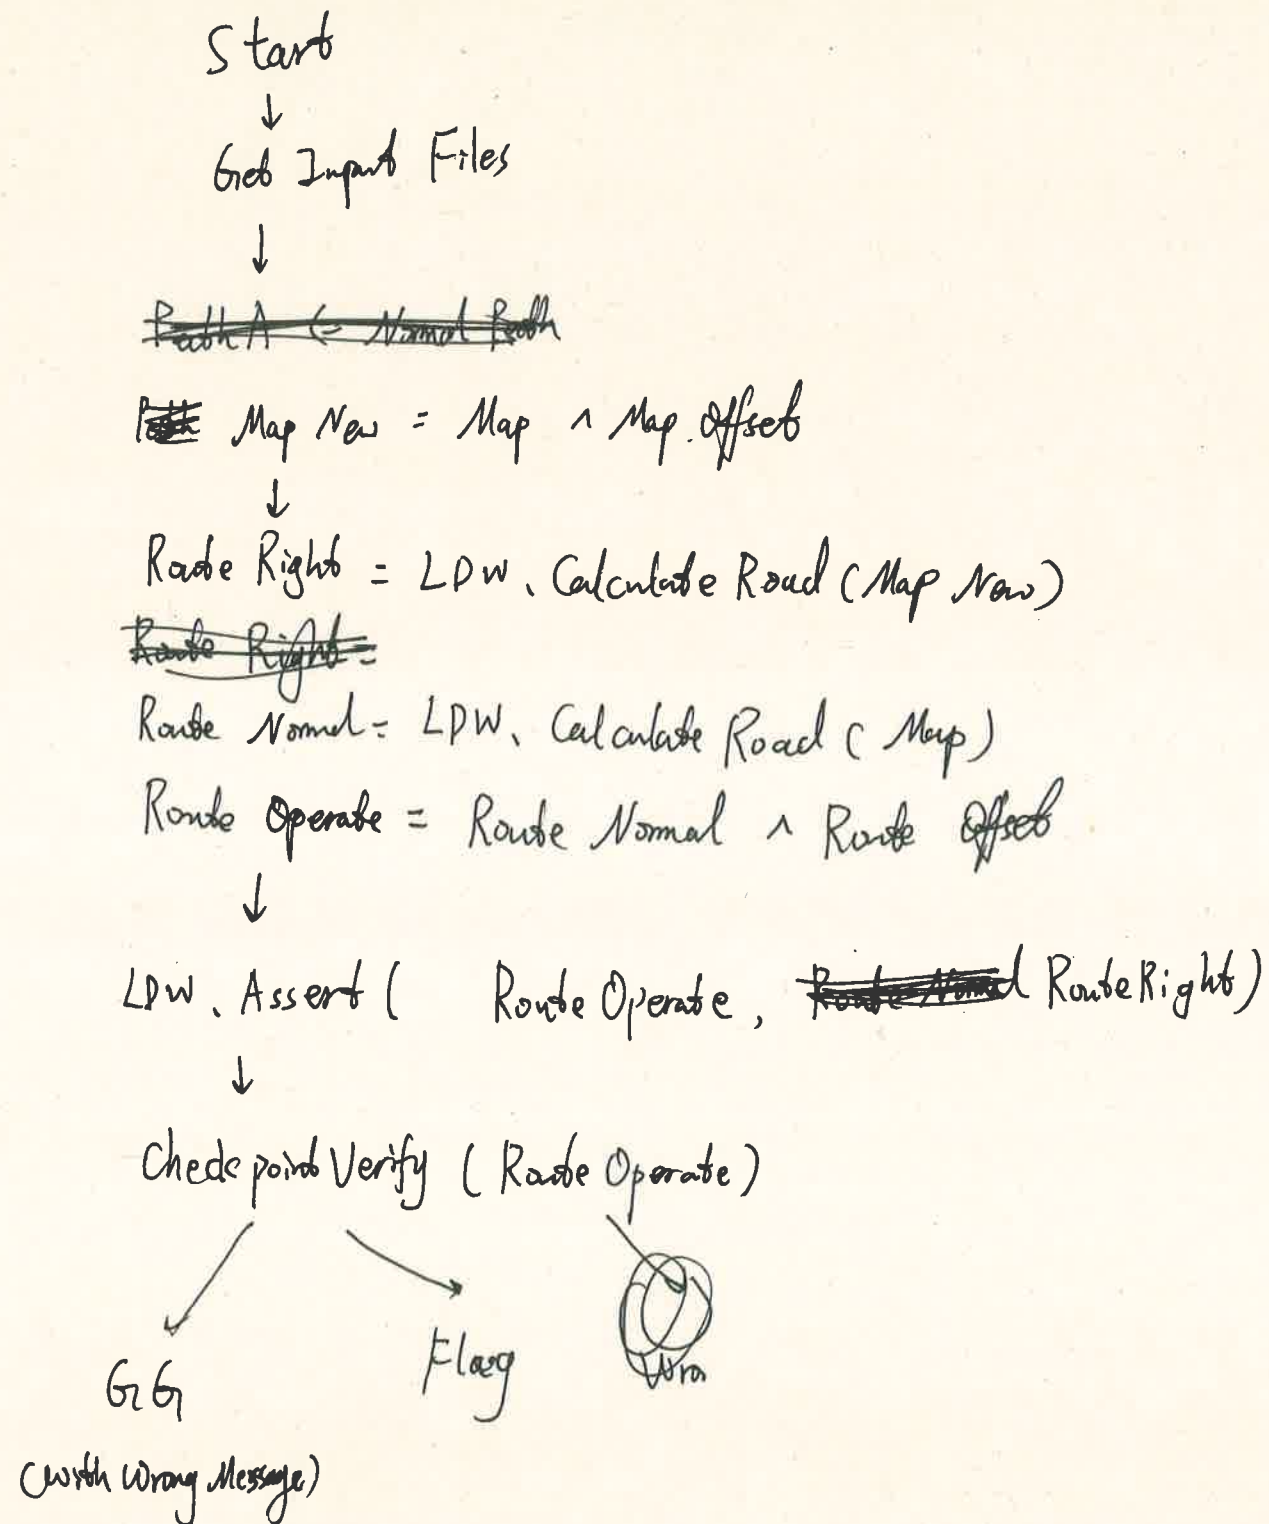 Start
↓
Get Input Files
↓
Path A <= Normal Path
Map New = Map ^ Map.Offset
↓
Route Right = LDW.Calculate Road (Map New)
Route Right =
Route Normal = LDW.Calculate Road (Map)
Route Operate = Route Normal ^ Route Offset
↓
LDW.Assert ( Route Operate, Route Normal Route Right)
↓
Checkpoint Verify (Route Operate)
GG Flag Wro
(with Wrong Message)